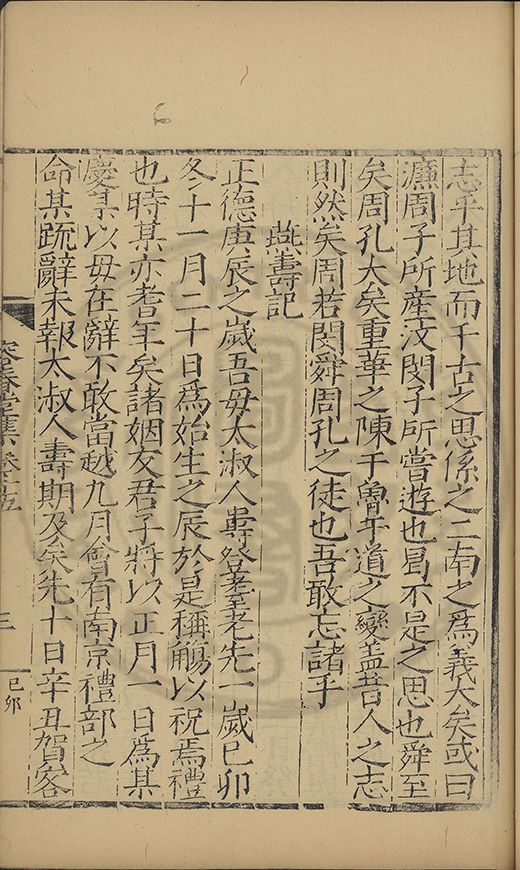 志乎其地而千古之思係之二南之為義大矣或曰
濂周子所產汶閔子所嘗遊也曷不是之思也舜至
矣周孔大矣重華之陳于魯平道之變蓋昔人之志
則然矣周若閔舜周孔之徒也吾敢忘諸乎
燕壽記
正德庚辰之歲吾母太淑人壽登耋老先一歲己卯
冬十一月二十日為始生之辰於是稱觴以祝焉禮
也時某亦耆年矣諸姻友君子將以正月一日為某
慶某以母在辭不敢當越九月會有南京禮部之
命某疏辭未報太淑人壽期及矣先十日辛丑賀客
容春堂集 卷十五
三
己卯